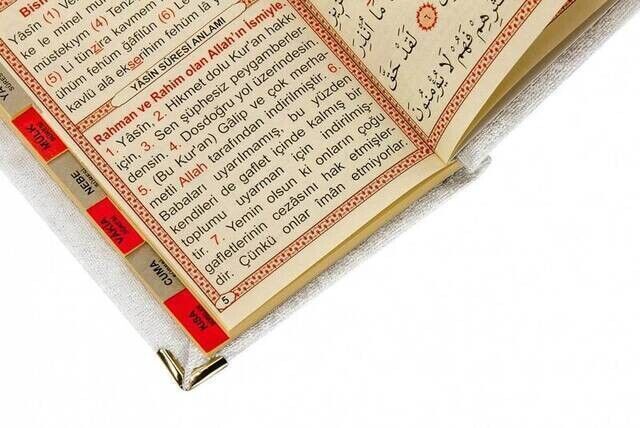 Yâsin (1) Ve
ke le minel mü
müstekıym (4) Tenz
(5) Li tünzira kavmem
ühüm fehüm ğâfilûn (6) Le
kavlü alâ ekserihim fehüm lâ y
YÂSİN SÛRESİ ANLAMI
Rahman ve Rahim olan Allah'ın İsmiyle
1. Yâsin, 2. Hikmet dolu Kur'an hakkı
için. 3. Sen şüphesiz peygamberler-
densin. 4. Dosdoğru yol üzerindesin.
5. (Bu Kur'an) Gâlip ve çok merha-
metli Allah tarafından indirilmiştir. 6.
Babaları uyarılmamış, bu yüzden
kendileri de gaflet içinde kalmış bir
toplumu uyarman için indirilmiş-
tir. 7. Yemin olsun ki onların çoğu
gafletlerinin cezâsını hak etmişler-
dir. Çünkü onlar îmân etmiyorlar.
5
لَقَدْ حَقَّ
فَهُمْ لَا يُؤْمِنُونَ
MÜLK
NEBE
VAKIA
CUMA
KISA